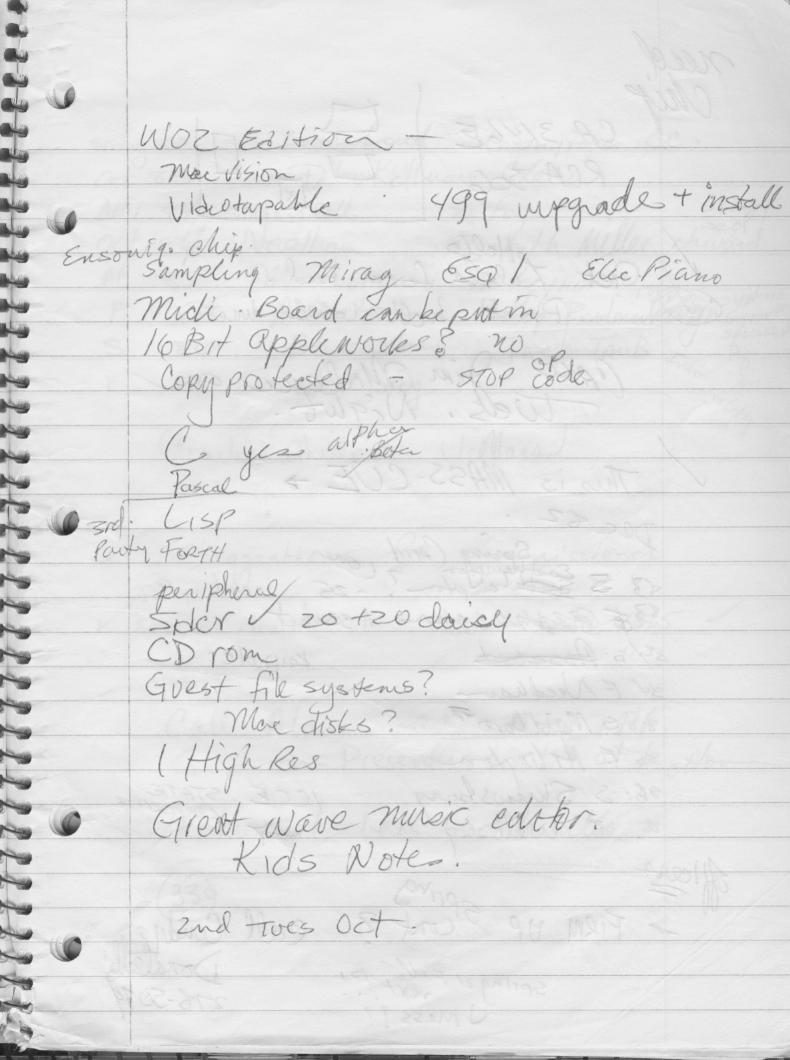 WOZ Edition —
MacVision
Videotapable · 499 upgrade + install
Ensoniq. chip.
Sampling Mirag ESQ 1 Elec Piano
Midi · Board can be put in
16 Bit Appleworks? no
Copy protected — STOP op code
C yes alpha Beta
Pascal
3rd. Party
LISP
FORTH
peripheral
Spdr ✓ 20 + 20 daisy
CD rom
Guest file systems?
Mac disks?
1 High Res
Great wave music editor.
Kids Notes.
2nd Tues Oct.